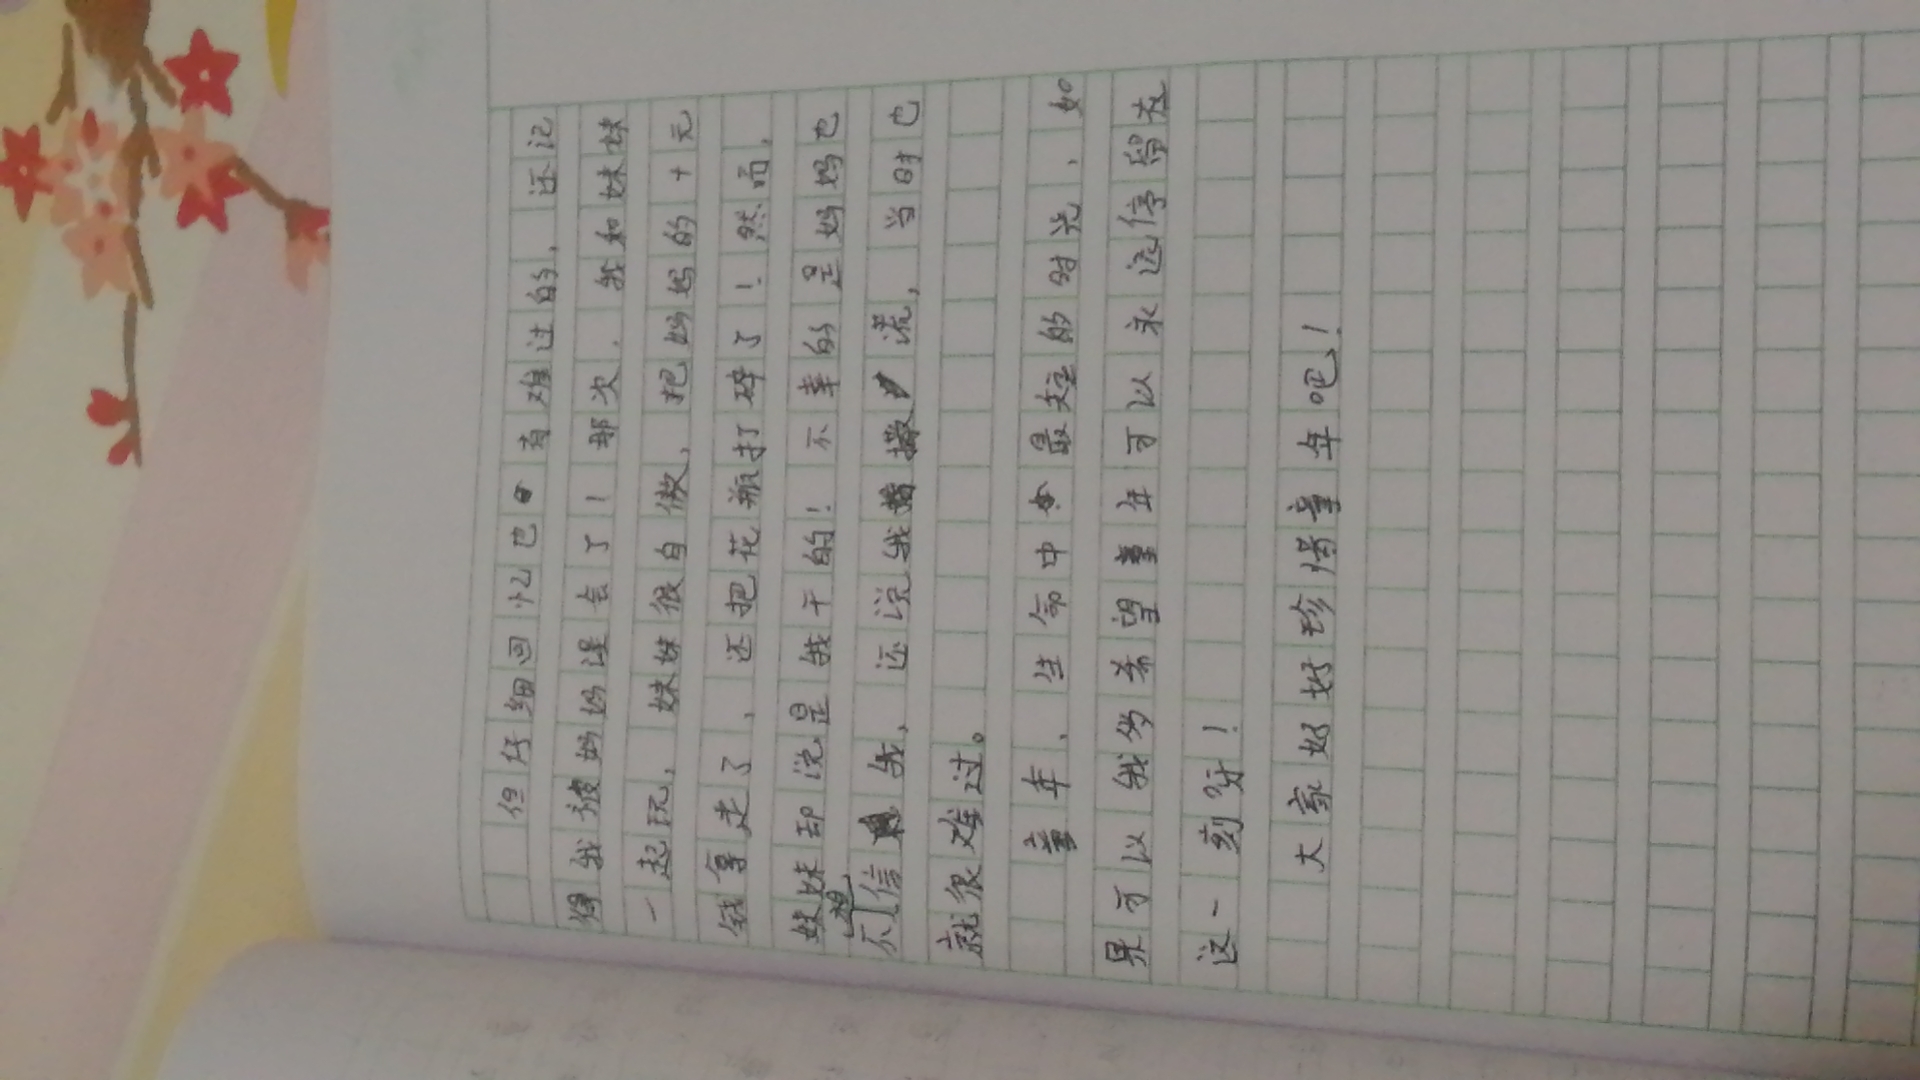 但仔细回忆也有难过的，还记
得我被妈妈误会了！那次，我和妹妹
一起玩，妹妹很自傲，把妈妈的十元
钱拿走了，还把花瓶打碎了！然而，
妹妹却说是我干的！不幸的是妈妈也
不相信我，还说我撒谎，当时也
就很难过。
童年，生命中最好的时光，如
果可以我多希望童年可以永远停留在
这一刻呀！
大家好好珍惜童年吧！